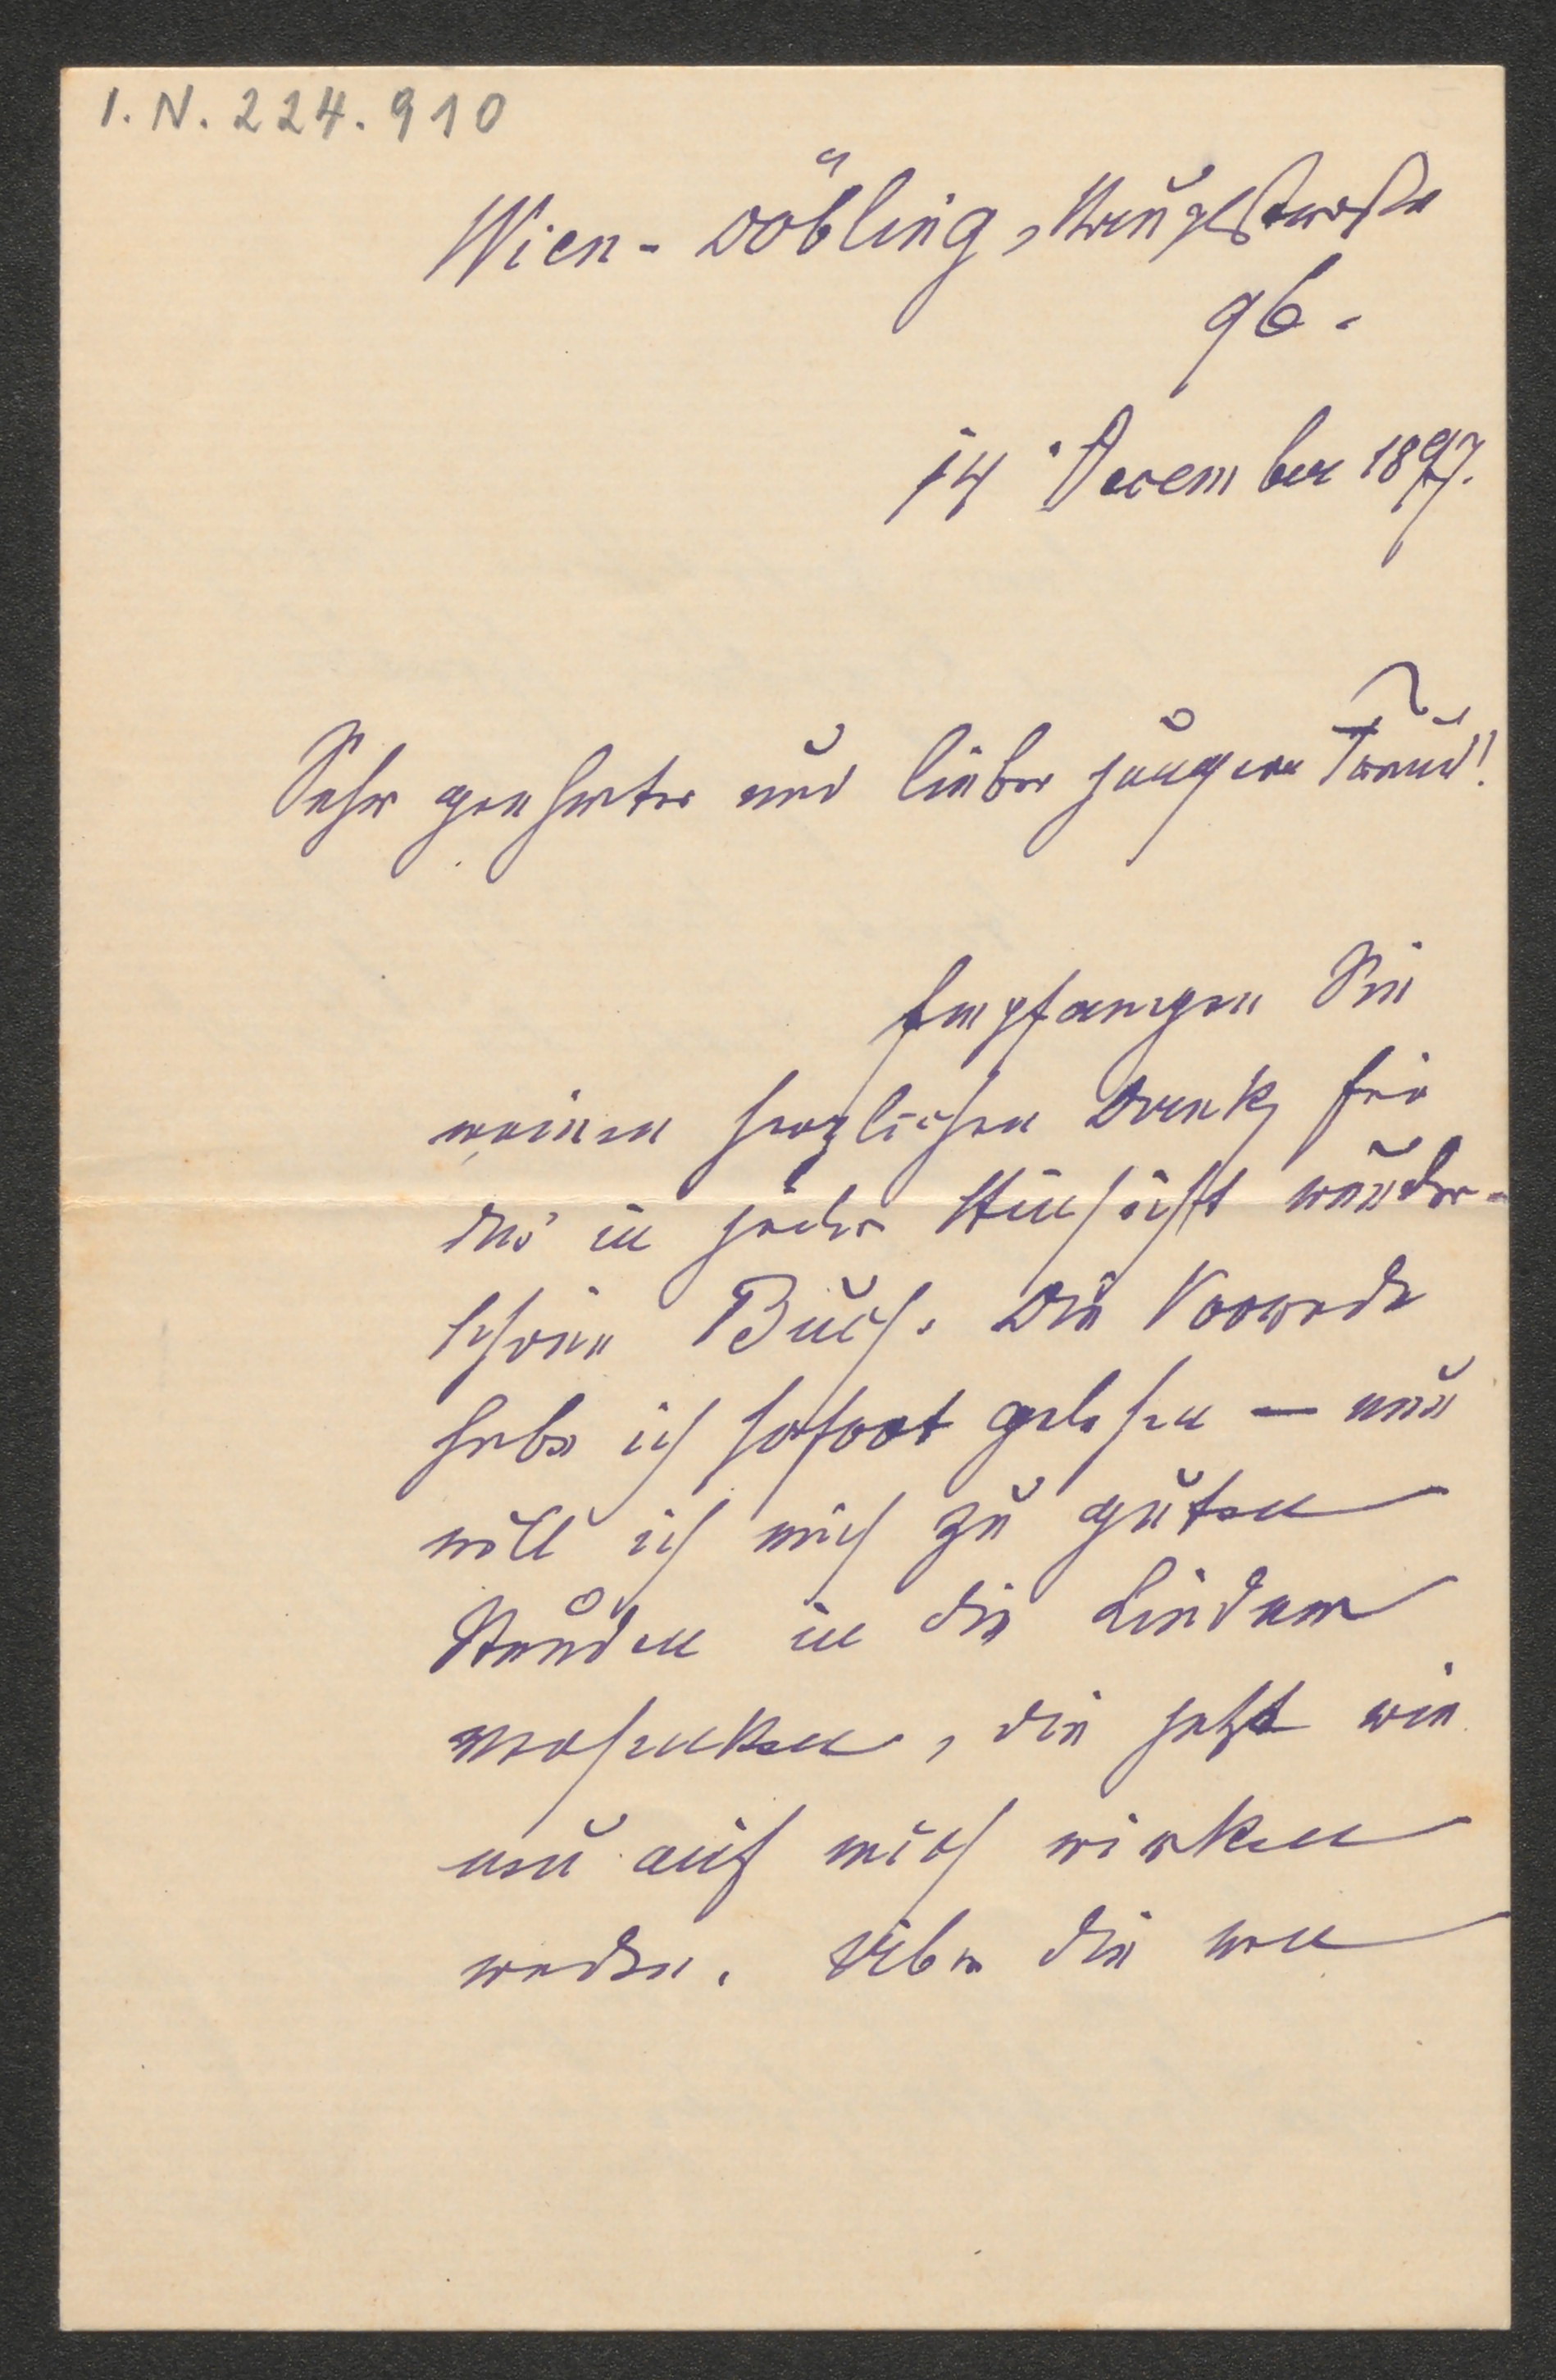 I.N. 224.910
Wien-Döbling, Hauptstraße
96.
14 December 1897.
Sehr geehrter und lieber junger Freund!
Empfangen Sie
meinen herzlichen Dank für
das in jeder Hinsicht wunder-
schöne Buch. Die Vorrede
habe ich sofort gelesen — nun
will ich mich zu guten
Stunden in die Lieder
versenken, die jetzt wie
neu auf mich wirken
werden. Über die